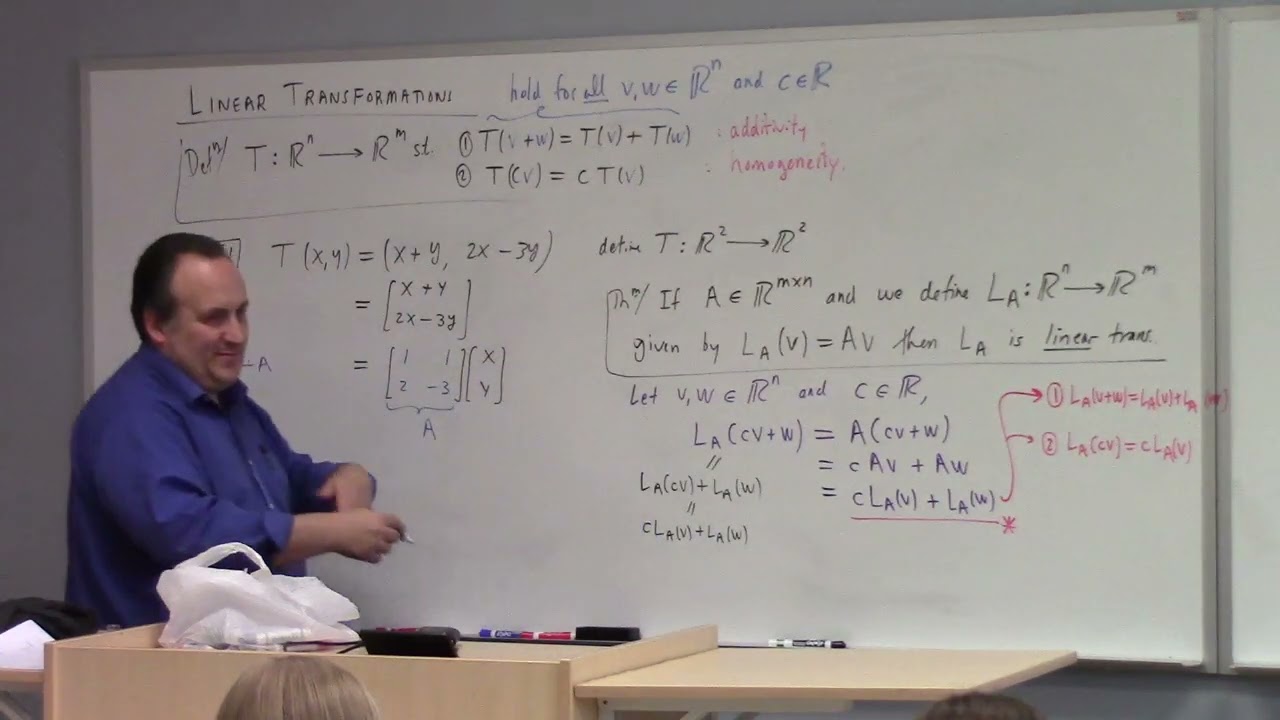 LINEAR TRANSFORMATIONS hold for all v,w ∈ ℝⁿ and c ∈ ℝ
Defⁿ/ T : ℝⁿ → ℝᵐ st. ① T(v+w) = T(v) + T(w) : additivity
② T(cv) = c T(v) : homogeneity.
T(x,y) = (x+y, 2x-3y) define T : ℝ² → ℝ²
= [x+y
2x-3y]
= [1 1
2 -3] [x
y]
A
A
Thᵐ/ If A ∈ ℝᵐˣⁿ and we define L_A : ℝⁿ → ℝᵐ
given by L_A(v) = Av then L_A is linear trans.
Let v,w ∈ ℝⁿ and c ∈ ℝ,
L_A(cv+w) = A(cv+w)
= cAv + Aw
= cL_A(v) + L_A(w) *
=
L_A(cv) + L_A(w)
=
cL_A(v) + L_A(w)
① L_A(v+w) = L_A(v) + L_A
② L_A(cv) = cL_A(v)